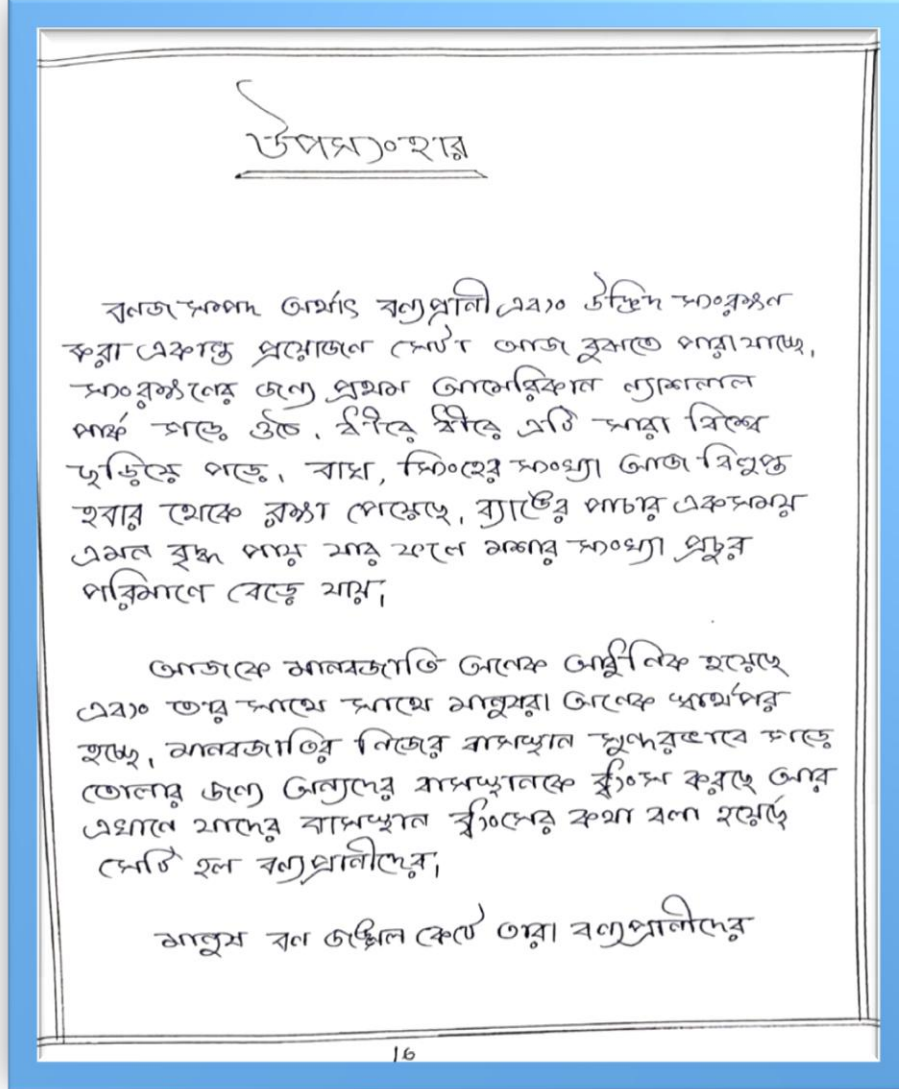 উপসংহার
বনজ সম্পদ অর্থাৎ বন্যপ্রানী এবং উদ্ভিদ সংরক্ষন
করা একান্ত প্রয়োজন সেটা আজ বুঝতে পারা যাচ্ছে,
সংরক্ষনের জন্য প্রথম আমেরিকান ন্যাশনাল
পার্ক গড়ে ওঠে, ধীরে ধীরে এটি সারা বিশ্বে
ছড়িয়ে পড়ে, বাঘ, সিংহের সংখ্যা আজ বিলুপ্ত
হবার থেকে রক্ষা পেয়েছে, ব্যাঙের পাচার একসময়
এমন বৃদ্ধ পায় যার ফলে মশার সংখ্যা প্রচুর
পরিমাণে বেড়ে যায়।
আজকে মানবজাতি অনেক আধুনিক হয়েছে
এবং তার সাথে সাথে মানুষরা অনেক স্বার্থপর
হচ্ছে, মানবজাতির নিজের বাসস্থান সুন্দরভাবে গড়ে
তোলার জন্য অন্যদের বাসস্থানকে ধ্বংস করছে আর
এখানে যাদের বাসস্থান ধ্বংসের কথা বলা হয়েছে
সেটি হল বন্যপ্রানীদের।
মানুষ বন জঙ্গল কেটে তারা বন্যপ্রানীদের
16